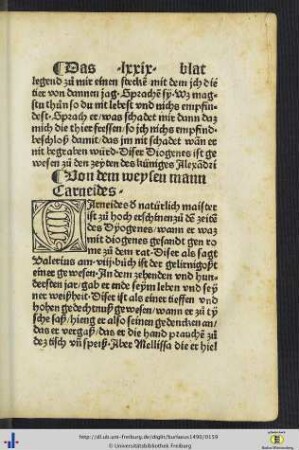 ¶Das ·lxxix· blat
legend zů mir einen steckē mit dem jch die
tier von dannen jag· Sprachē sy· Wz mag-
stu thůn so du nit lebest vnd nichs empfin-
dest· Sprach er/was schadet mir dann daz
mich die thier fressen/so jch nichs empfind·
beschloß damit·das jm nit schadet wān er
nit begraben würd· Diser Diogenes ist ge
wesen zů den zeyten des küniges Alexādri
¶Von dem weysen mann
Carneides·
CArneides d̄ natürlich maister
ist zů hoch erschinen zů dē zeitē
des Dyogenes/wann er waz
mit diogenes gesandt gen ro
me zů dem rat·Diser als sagt
Valerius am·viij·bůch ist der gelirnigoßt
einer gewesen·An dem zehenden vnd hun-
dersten jar/gab er ende seynn leben vnd sey
ner weyßheit·Diser ist als einer tieffen vnd
hohen gedechtnuß gewesen/wann er zů ty
sche saß/hieng er also seinen gedencken an/
das er vergaß/das er die hand prauchē zů
dez tisch vn̄ speiß·Aber Mellissa die er hiel
http://dl.ub.uni-freiburg.de/diglit/burlaeus1490/0159
Universitätsbibliothek Freiburg